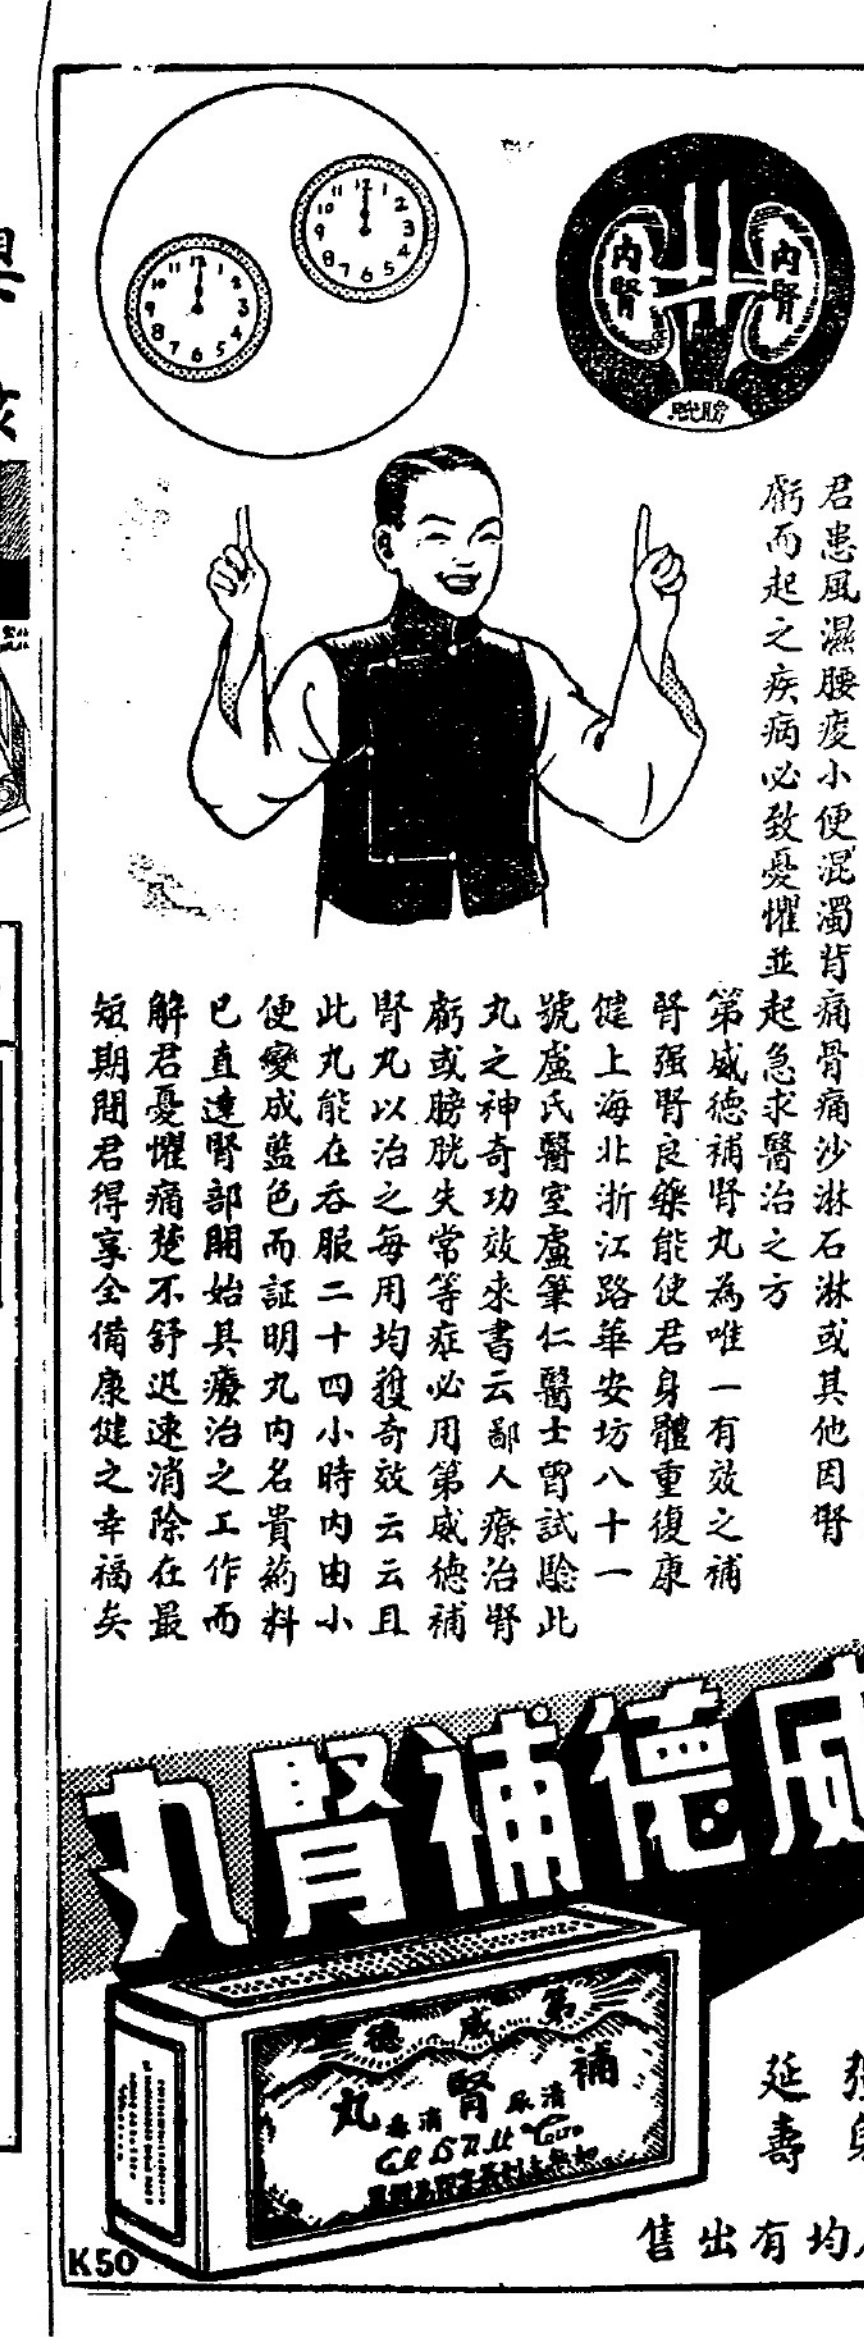 內腎
內腎
膀胱
君患風濕腰痠小便混濁背痛骨痛沙淋石淋或其他因腎
虧而起之疾病必致憂懼並起急求醫治之方
第威德補腎丸為唯一有效之補
腎强腎良藥能使君身體重復康
健上海北浙江路華安坊八十一
號盧氏醫室盧筆仁醫士曾試驗此
丸之神奇功效來書云鄙人療治腎
虧或膀胱失常等症必用第威德補
腎丸以治之每用均獲奇效云云且
此丸能在吞服二十四小時內由小
便變成藍色而証明丸內名貴葯料
已直達腎部開始其療治之工作而
解君憂懼痛楚不舒迅速消除在最
短期間君得享全備康健之幸福矣
威德補腎丸
第威德
補腎丸
清尿消毒
延壽
均有出售
K50